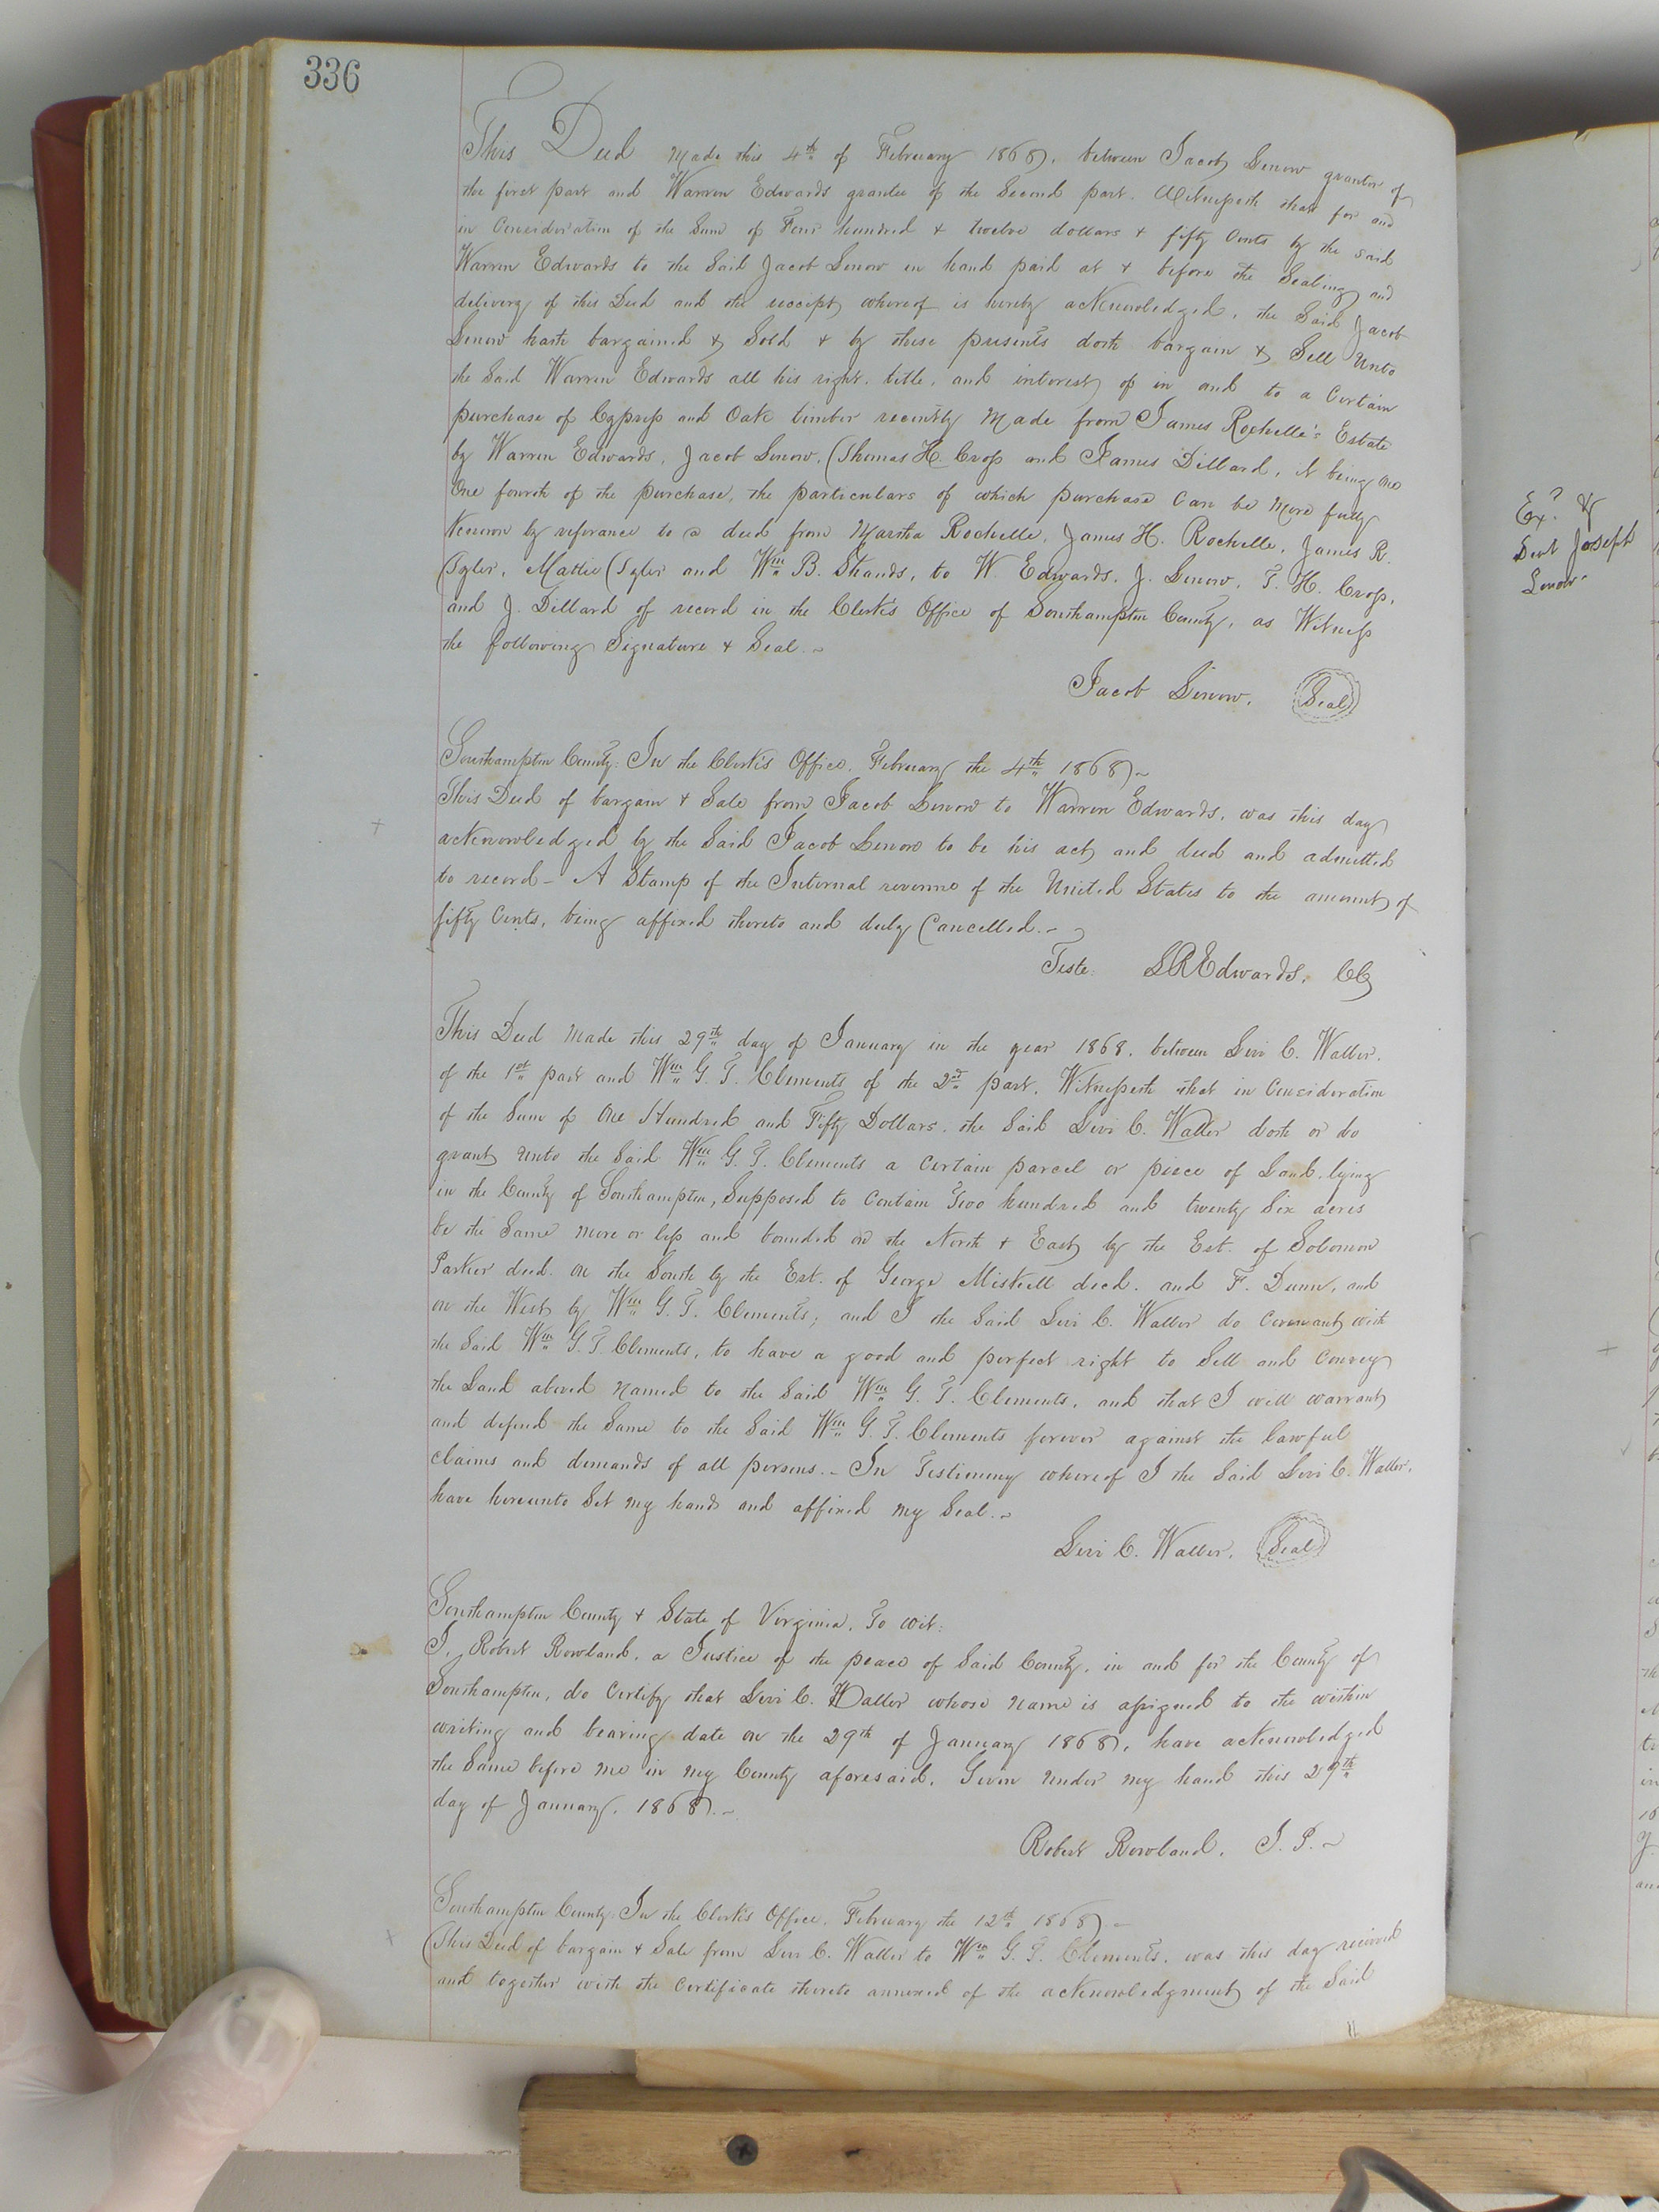 336
This Deed made this 4th of February 1868, between Jacob Lenow grantor of
the first part and Warren Edwards grantee of the Second part. Witnesseth that for and
in Consideration of the Sum of Four hundred & twelve dollars & fifty Cents by the said
Warren Edwards to the Said Jacob Lenow in hand paid at & before the Sealing and
delivery of this Deed and the receipt whereof is hereby acknowledged, the Said Jacob
Lenow hath bargained & Sold & by these presents doth bargain & Sell unto
the Said Warren Edwards all his right, title, and interest of in and to a Certain
purchase of Cypress and Oak timber recently made from James Rochelle's Estate
by Warren Edwards, Jacob Lenow, Thomas H. Cross and James Dillard, it being one
One fourth of the purchase, the particulars of which purchase Can be more fully
Known by referance to a deed from Martha Rochelle, James H. Rochelle, James R.
Tyler, Mattie Tyler and Wm B. Shands, to W. Edwards, J. Lenow, T. H. Cross,
and J. Dillard of record in the Clerk's Office of Southampton County, as Witness
the following Signature & Seal.~
Jacob Lenow. Seal
Southampton County: In the Clerk's Office, February the 4th 1868~
This Deed of bargain & Sale from Jacob Lenow to Warren Edwards, was this day
acknowledged by the Said Jacob Lenow to be his act and deed and admitted
to record - A Stamp of the Internal revenue of the United States to the amount of
fifty Cents, being affixed thereto and duly Cancelled.~
Teste: L R Edwards, CC
This Deed made this 29th day of January in the year 1868, between Levi C. Waller,
of the 1st part and Wm G. T. Clements of the 2nd part, Witnesseth that in Consideration
of the Sum of One Hundred and Fifty Dollars, the Said Levi C. Waller doth or do
grant unto the Said Wm G. T. Clements a Certain parcel or piece of Land, lying
in the County of Southampton, Supposed to Contain Two hundred and twenty Six acres
be the Same more or less and bounded on the North & East by the Est. of Solomon
Parker decd. on the South by the Est. of George Miskell decd. and F. Dunn, and
on the West by Wm G. T. Clements; and I the Said Levi C. Waller do Covenant with
the Said Wm G. T. Clements, to have a good and perfect right to Sell and Convey
the Land above named to the Said Wm G. T. Clements, and that I will warrant
and defend the Same to the Said Wm G. T. Clements forever against the lawful
claims and demands of all persons.- In Testimony whereof I the Said Levi C. Waller,
have hereunto Set my hand and affixed my Seal.~
Levi C. Waller, Seal
Southampton County & State of Virginia, To wit:
I, Robert Rowland, a Justice of the peace of Said County, in and for the County of
Southampton, do Certify that Levi C. Waller whose name is assigned to the within
writing and bearing date on the 29th of January 1868, have acknowledged
the Same before me in my County aforesaid. Given under my hand this 29th
day of January, 1868.~
Robert Rowland, J. P.~
Southampton County: In the Clerk's Office, February the 12th 1868.-
This Deed of bargain & Sale from Levi C. Waller to Wm G. T. Clements, was this day received
and together with the Certificate thereto annexed of the acknowledgment of the Said
Ex.d &
Joseph
Lenow